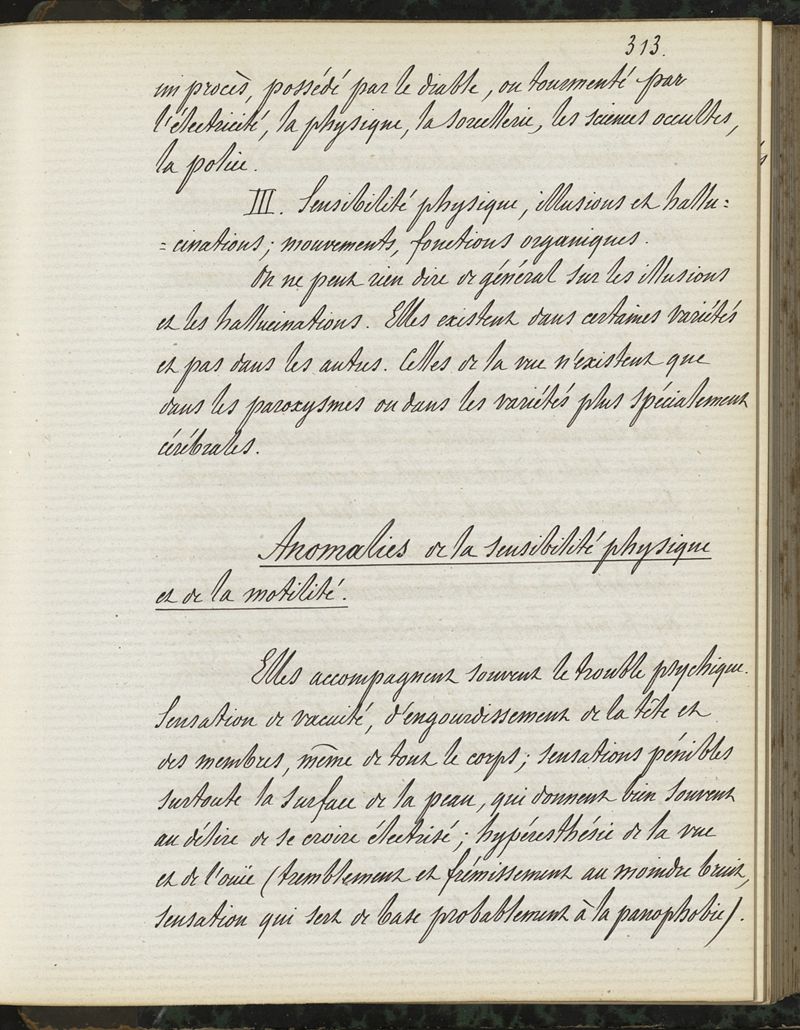 313.
un procès, possédé par le diable, ou tourmenté par
l'électricité, la physique, la sorcellerie, les sciences occultes,
la police.
III. Sensibilité physique, illusions et hallu:
=cinations; mouvements, fonctions organiques.
On ne peut rien dire de général sur les illusions
et les hallucinations. Elles existent dans certaines variétés
et pas dans les autres. Celles de la vue n'existent que
dans les paroxysmes ou dans les variétés plus spécialement
cérébrales.
Anomalies de la sensibilité physique
et de la motilité.
Elles accompagnent souvent le trouble psychique.
Sensation de vacuité, d'engourdissement de la tête et
des membres, même de tout le corps; sensations pénibles
surtoute la surface de la peau, qui donnent bien souvent
au délire de se croire électrisé; hypéresthésie de la vue
et de l'ouïe (tremblement et frémissement au moindre bruit,
sensation qui sert de base probablement à la panophobie).